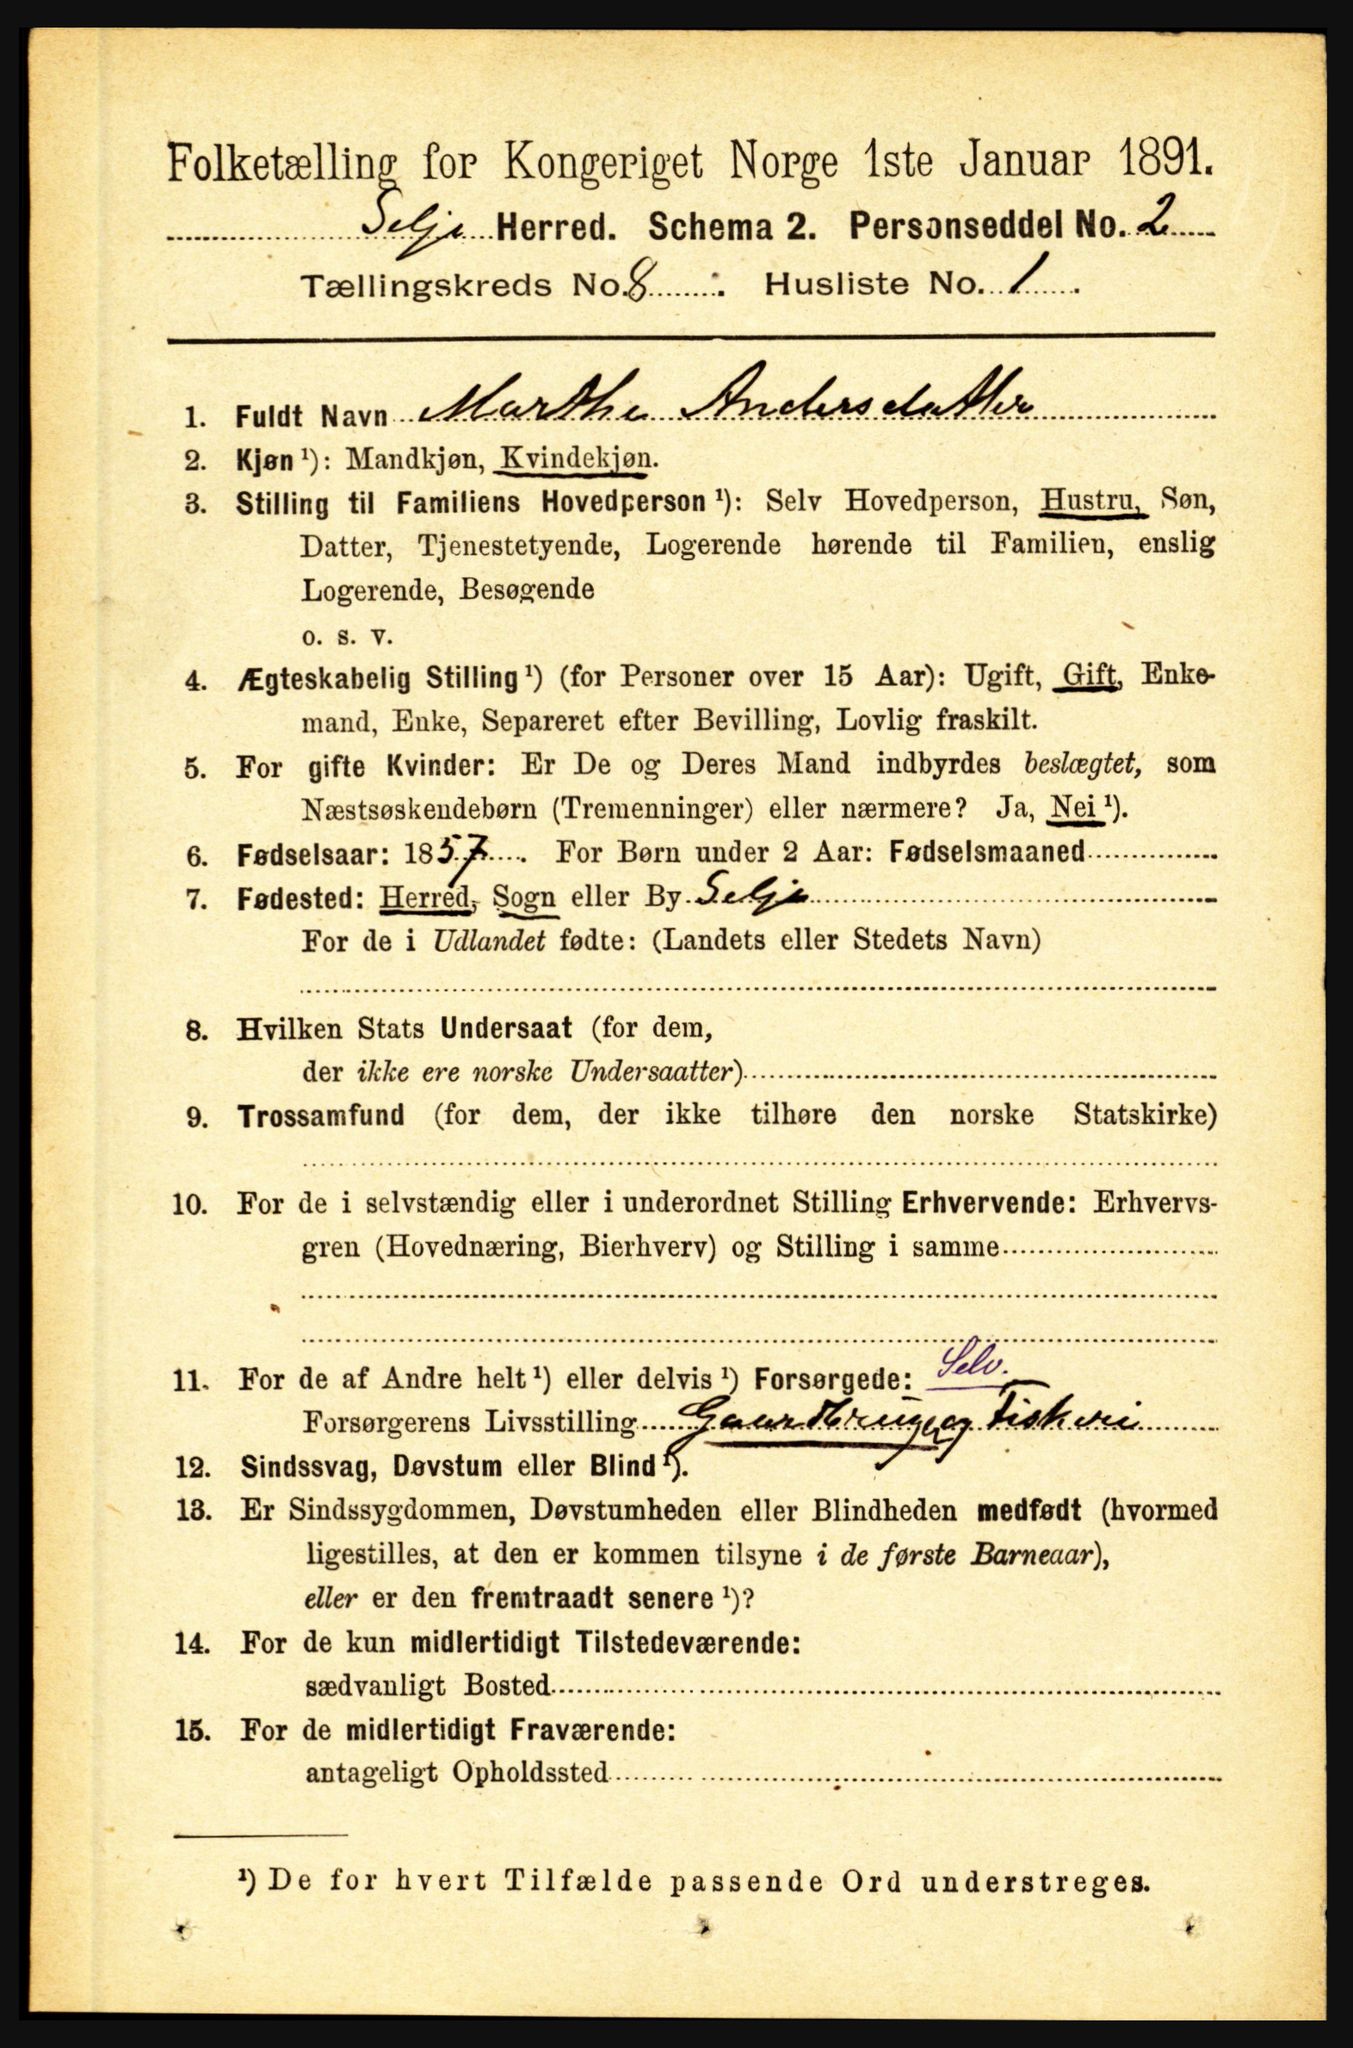 Folketælling for Kongeriget Norge 1ste Januar 1891.
Selje Herred. Schema 2. Personseddel No. 2
Tællingskreds No. 8. Husliste No. 1.
1. Fuldt Navn Marthe Andersdatter
2. Kjøn ¹): Mandkjøn, Kvindekjøn.
3. Stilling til Familiens Hovedperson ¹): Selv Hovedperson, Hustru, Søn,
Datter, Tjenestetyende, Logerende hørende til Familien, enslig
Logerende, Besøgende
o. s. v.
4. Ægteskabelig Stilling ¹) (for Personer over 15 Aar): Ugift, Gift, Enke-
mand, Enke, Separeret efter Bevilling, Lovlig fraskilt.
5. For gifte Kvinder: Er De og Deres Mand indbyrdes beslægtet, som
Næstsøskendebørn (Tremenninger) eller nærmere? Ja, Nei ¹).
6. Fødselsaar: 1857. For Børn under 2 Aar: Fødselsmaaned
7. Fødested: Herred, Sogn eller By Selje
For de i Udlandet fødte: (Landets eller Stedets Navn)
8. Hvilken Stats Undersaat (for dem,
der ikke ere norske Undersaatter)
9. Trossamfund (for dem, der ikke tilhøre den norske Statskirke)
10. For de i selvstændig eller i underordnet Stilling Erhvervende: Erhvervs-
gren (Hovednæring, Bierhverv) og Stilling i samme
11. For de af Andre helt ¹) eller delvis ¹) Forsørgede: Selv.
Forsørgerens Livsstilling Gaardbruge og Fiskeri
12. Sindssvag, Døvstum eller Blind ¹).
13. Er Sindssygdommen, Døvstumheden eller Blindheden medfødt (hvormed
ligestilles, at den er kommen tilsyne i de første Barneaar),
eller er den fremtraadt senere ¹)?
14. For de kun midlertidigt Tilstedeværende:
sædvanligt Bosted
15. For de midlertidigt Fraværende:
antageligt Opholdssted
¹) De for hvert Tilfælde passende Ord understreges.